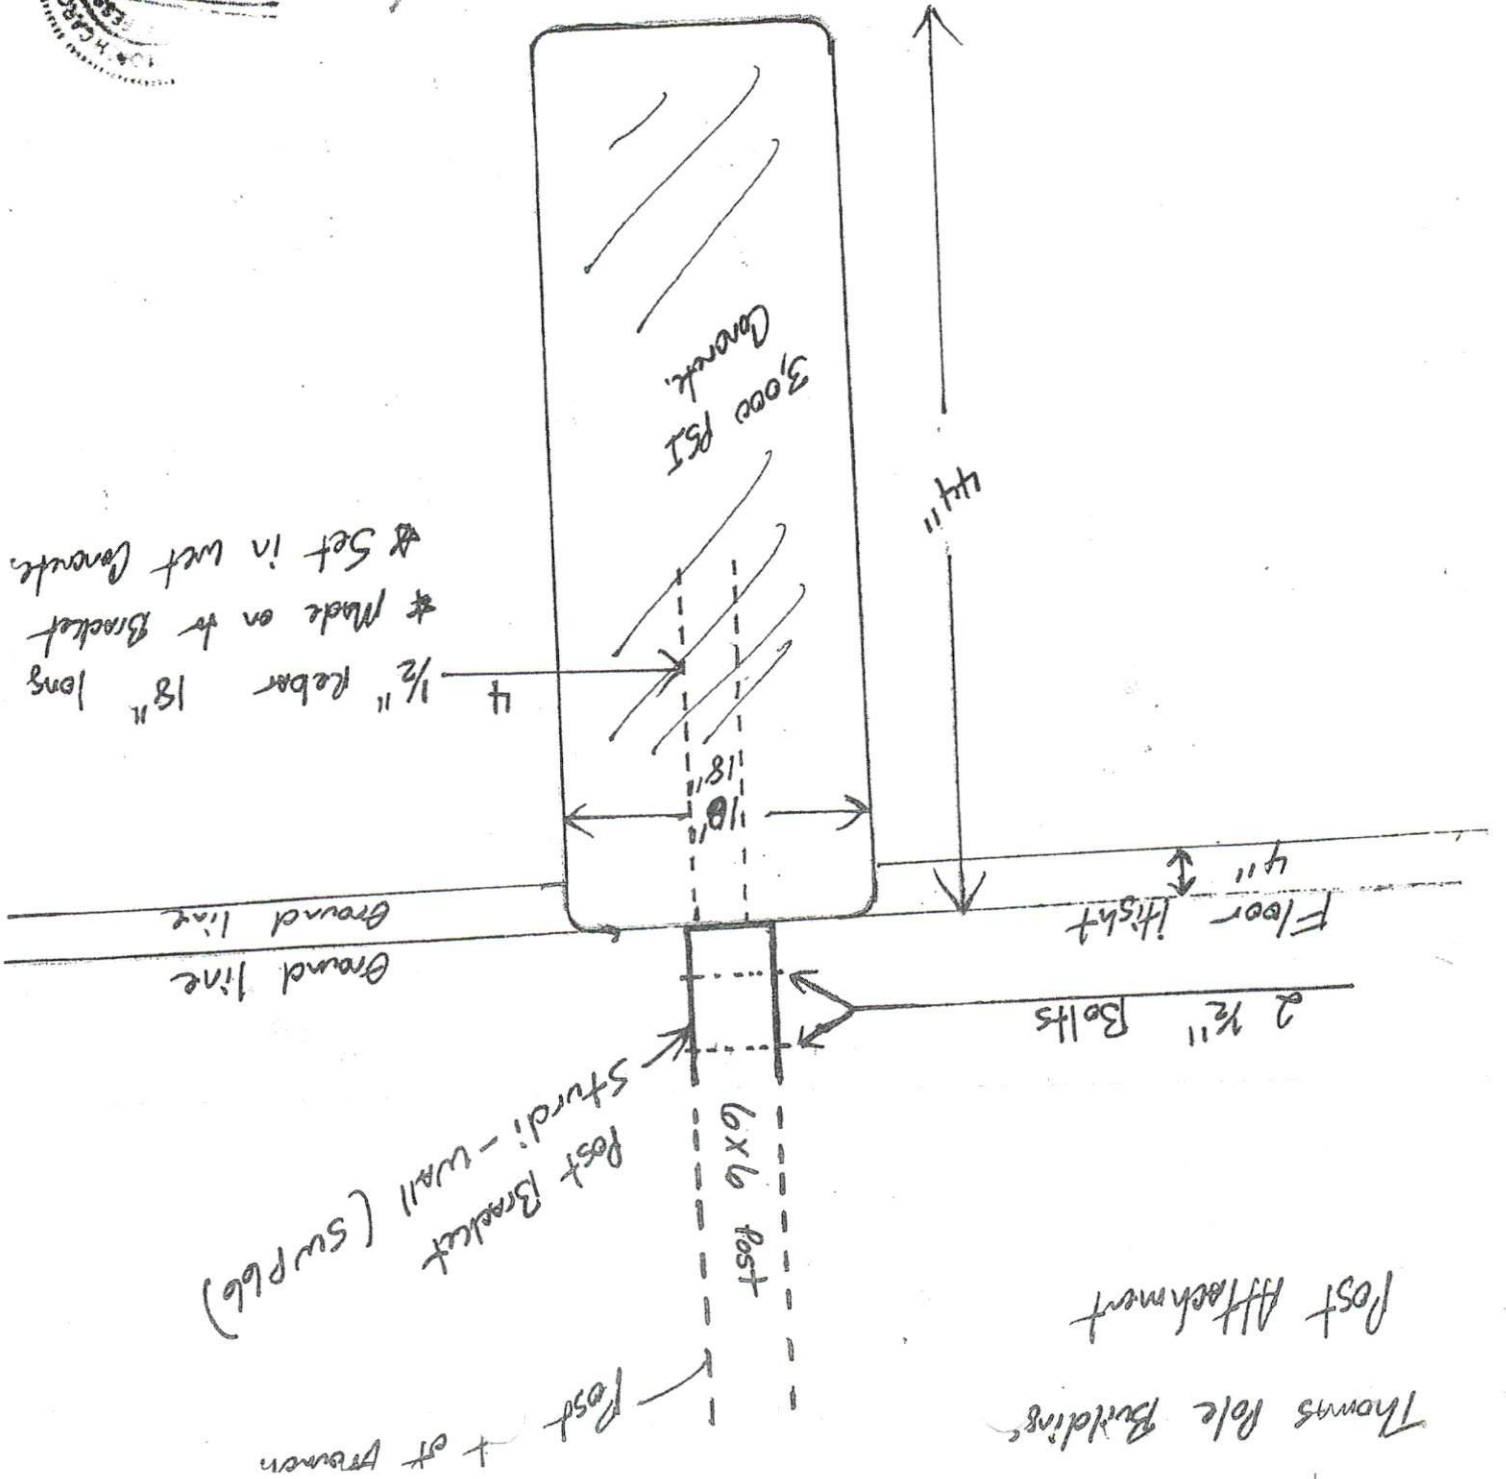 Thomas Pole Building
Post Attachment
Post
6x6 Post
Post Bracket
Sturdi-Wall (SWP66)
2 1/2" Bolts
Floor Hight
4"
Ground line
Ground line
18"
4 1/2" Rebar 18" long
* Made on to Bracket
* Set in wet Concrete.
44"
3,000 PSI
Concrete.